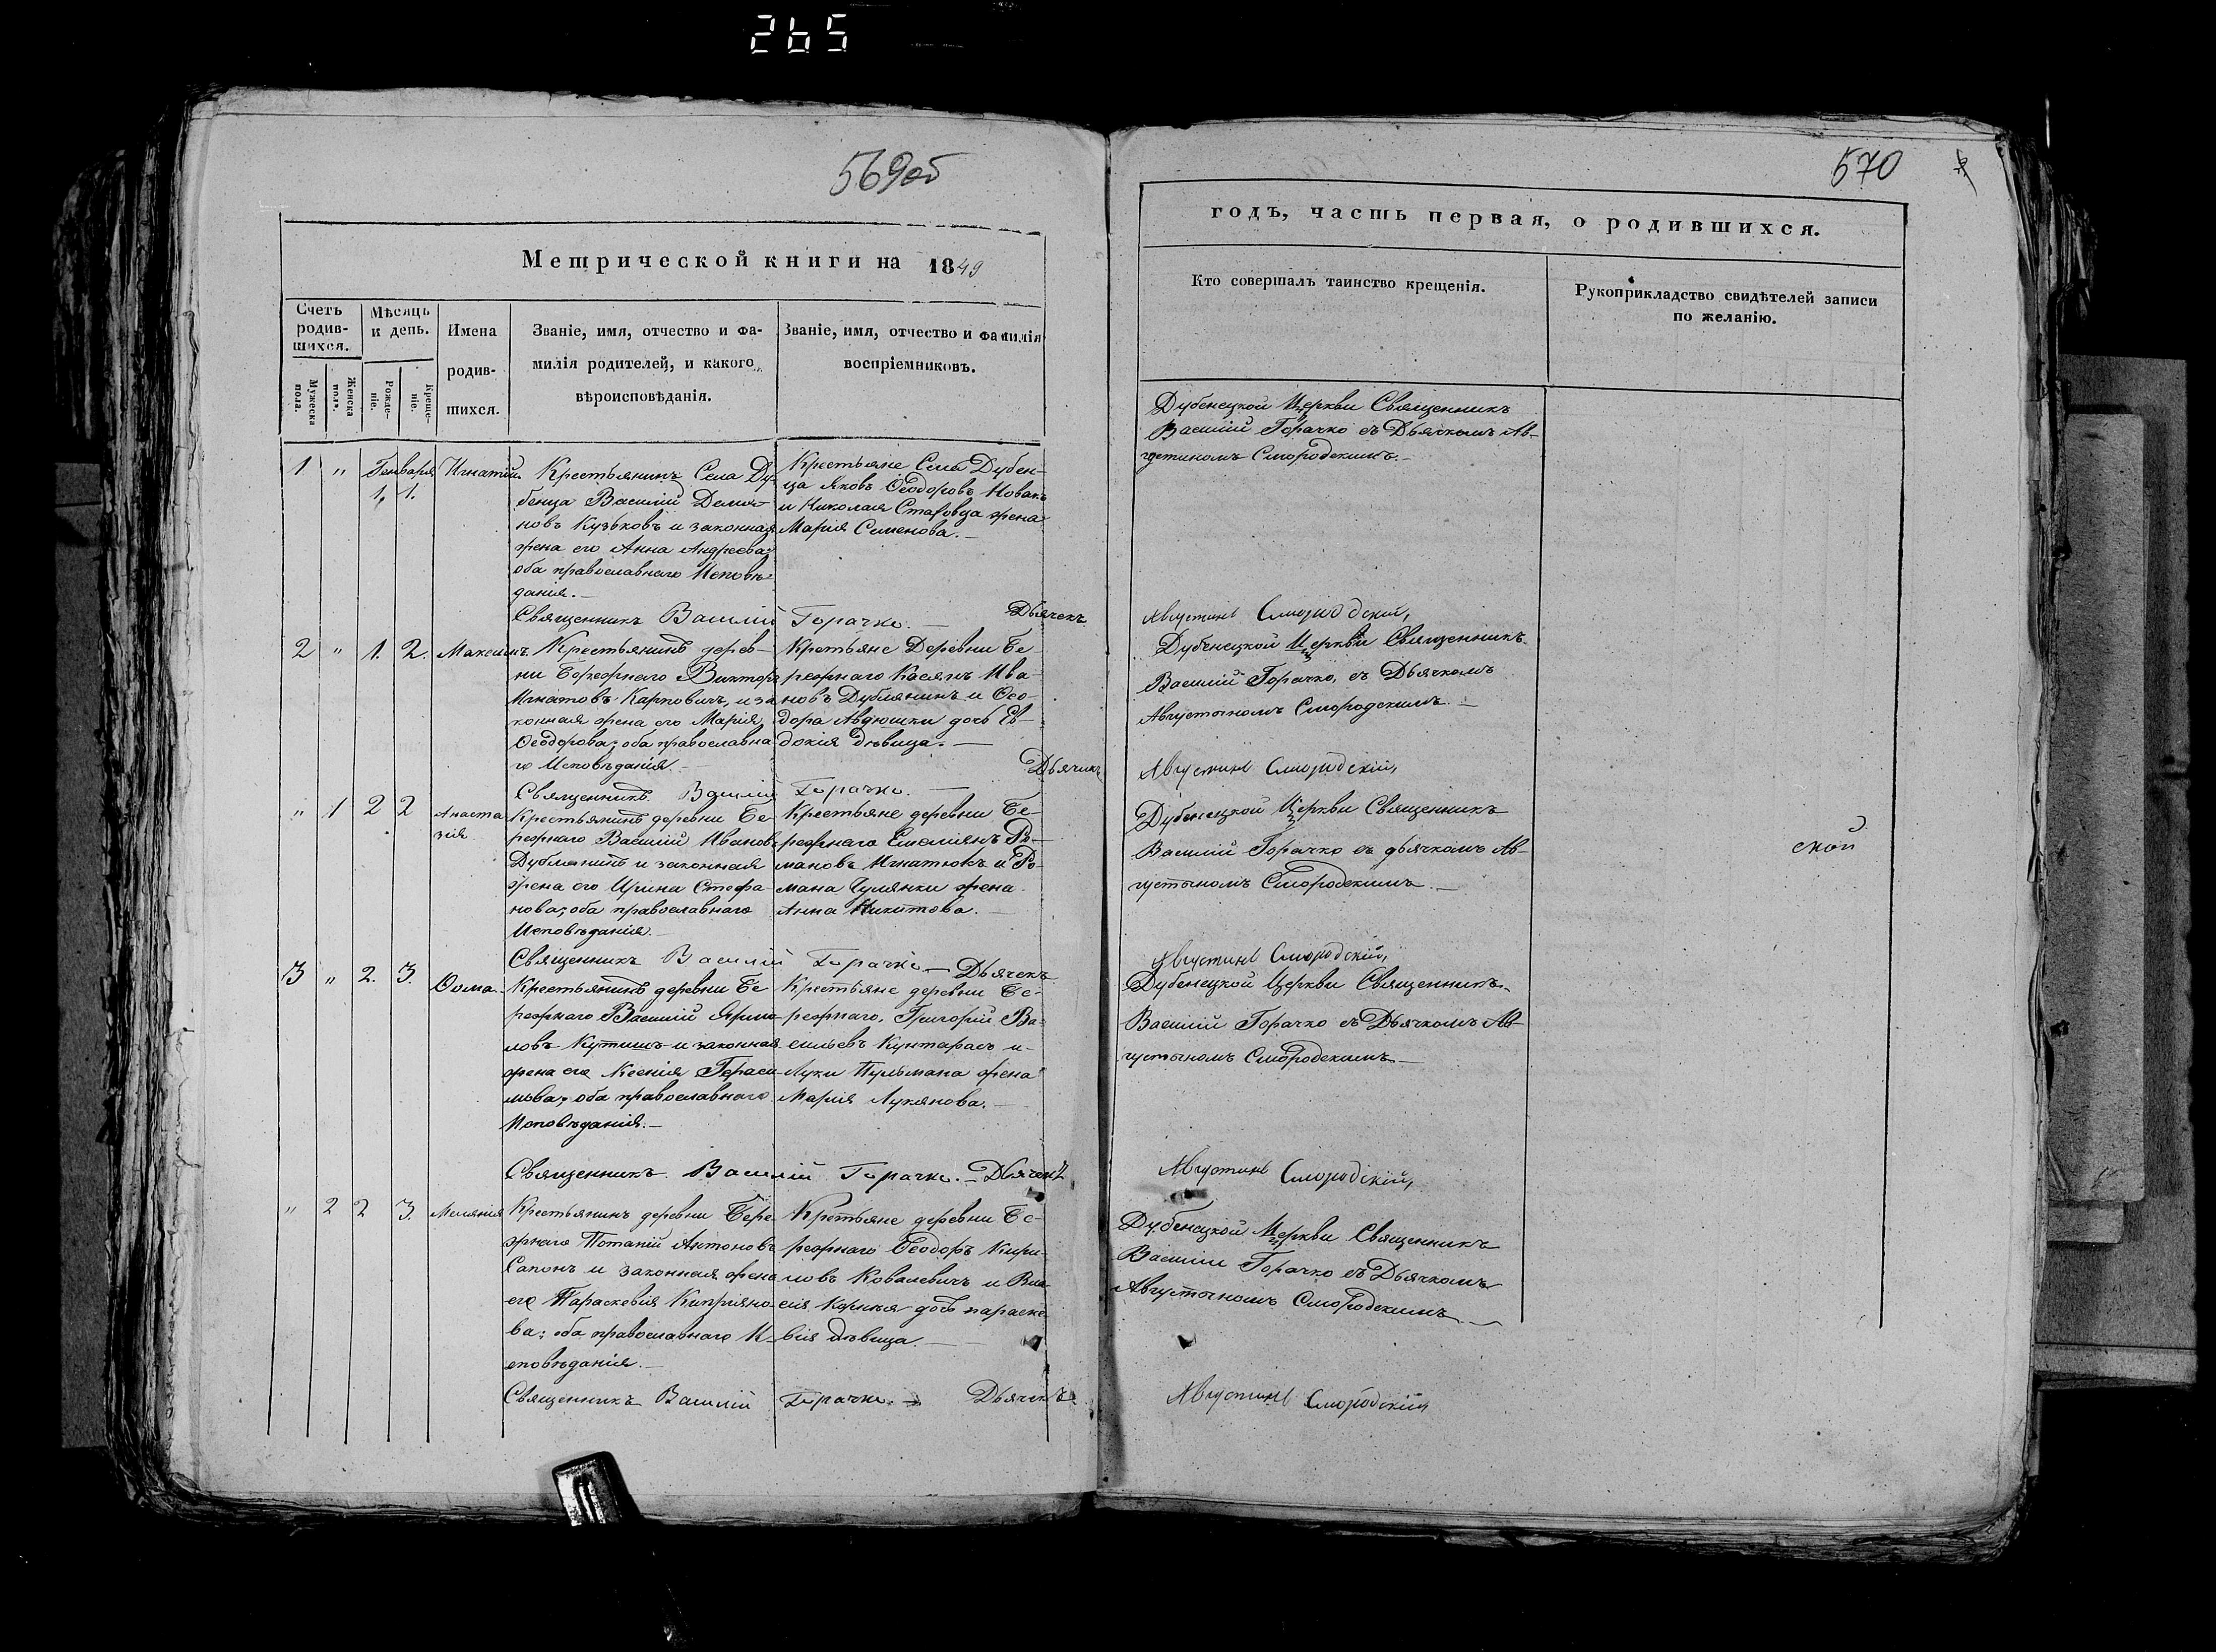 265
569об
Метрической книги на 1849
Счетъ родившихся.
Мужеска пола.
Женска пола.
Мѣсяцъ и день.
Рожденіе.
Крещеніе.
Имена родившихся.
Званіе, имя, отчество и фамилія родителей, и какого вѣроисповѣданія.
Званіе, имя, отчество и фамилія воспріемниковъ.
1 " Генваря 1. 1. Игнатій
Крестьянинъ Села Ду-
бенца Василій Демья-
новъ Кузьковъ и законная
жена его Анна Андреева,
оба православнаго Исповѣ-
данія.
Крестьяне Села Дубен-
ца Яковъ Ѳеодоровъ Новакъ
и Николая Стаховца жена
Марія Семенова.
Священникъ Василій Горачко. Дьячекъ
2 " 1. 2. Максимъ
Крестьянинъ дерев-
ни Бережнаго Викторъ
Игнатовъ Карповичъ, и за
конная жена его Марія
Ѳеодорова; оба православна
го Исповѣданія.
Кретьяне Деревни Бе
режнаго Касянъ Ива
новъ Дублянинъ и Ѳео-
дора Авдюшки дочь Ев-
докія дѣвица.
Дьячекъ
Священникъ Василій Горачко.
" 1 2 2 Анаста
зія
Крестьянинъ деревни Бе
режнаго Василій Ивановъ
Дублянинъ и законная
жена его Ирина Стефа
нова; оба православнаго
Исповѣданія.
Крестьяне деревни Бе-
режнаго Емеліянъ Ро-
мановъ Игнатюкъ и Ро-
мана Чулянки жена
Анна Никитова.
Священникъ Василій Горачко. Дьячекъ
3 " 2. 3. Ѳома.
Крестьянинъ деревни Бе
режнаго Василій Ярмо
ловъ Кутишъ и законная
жена его Ксенія Гераси
мова; оба православнаго
Исповѣданія.
Крестьяне деревни Бе-
режнаго, Григорій Ва-
сильевъ Кунтарасъ и
Луки Пульмана жена
Марія Лукянова.
Священникъ Василій Горачко. Дьячекъ
" 2 2 3. Меланія
Крестьянинъ деревни Бере
жнаго Потапій Антоновъ
Сапонъ и законная жена
его Параскевія Кипріяно
ва; оба православнаго И-
сповѣданія.
Кретьяне деревни Бе-
режнаго Ѳеодоръ Кири-
ловъ Ковалевичъ и Вла-
сія Корнѣя дочь параске
вія дѣвица.
Священникъ Василій Горачко. Дьячекъ
570
годъ, часть первая, о родившихся.
Кто совершалъ таинство крещенія.
Рукоприкладство свидѣтелей записи
по желанію.
Дубенецкой Церкви Священникъ
Василій Горачко съ Дьячкомъ Ав-
густиномъ Смородскимъ.
Августинъ Смородскій,
Дубенецкой Церкви Священникъ
Василій Горачко, съ Дьячкомъ
Августыномъ Смородскимъ.
Августинъ Смородскій,
Дубенецкой Церкви Священникъ
Василій Горачко съ дьячкомъ Ав-
густыномъ Смородскимъ.
ской
Августинъ Смородскій,
Дубенецкой Церкви Священникъ
Василій Горачко съ Дьячкомъ Ав-
густыномъ Смородскимъ
Августинъ Смородскій,
Дубенецкой Церкви Священникъ
Василій Горачко съ Дьячкомъ
Августыномъ Смородскимъ
Августинъ Смородскій